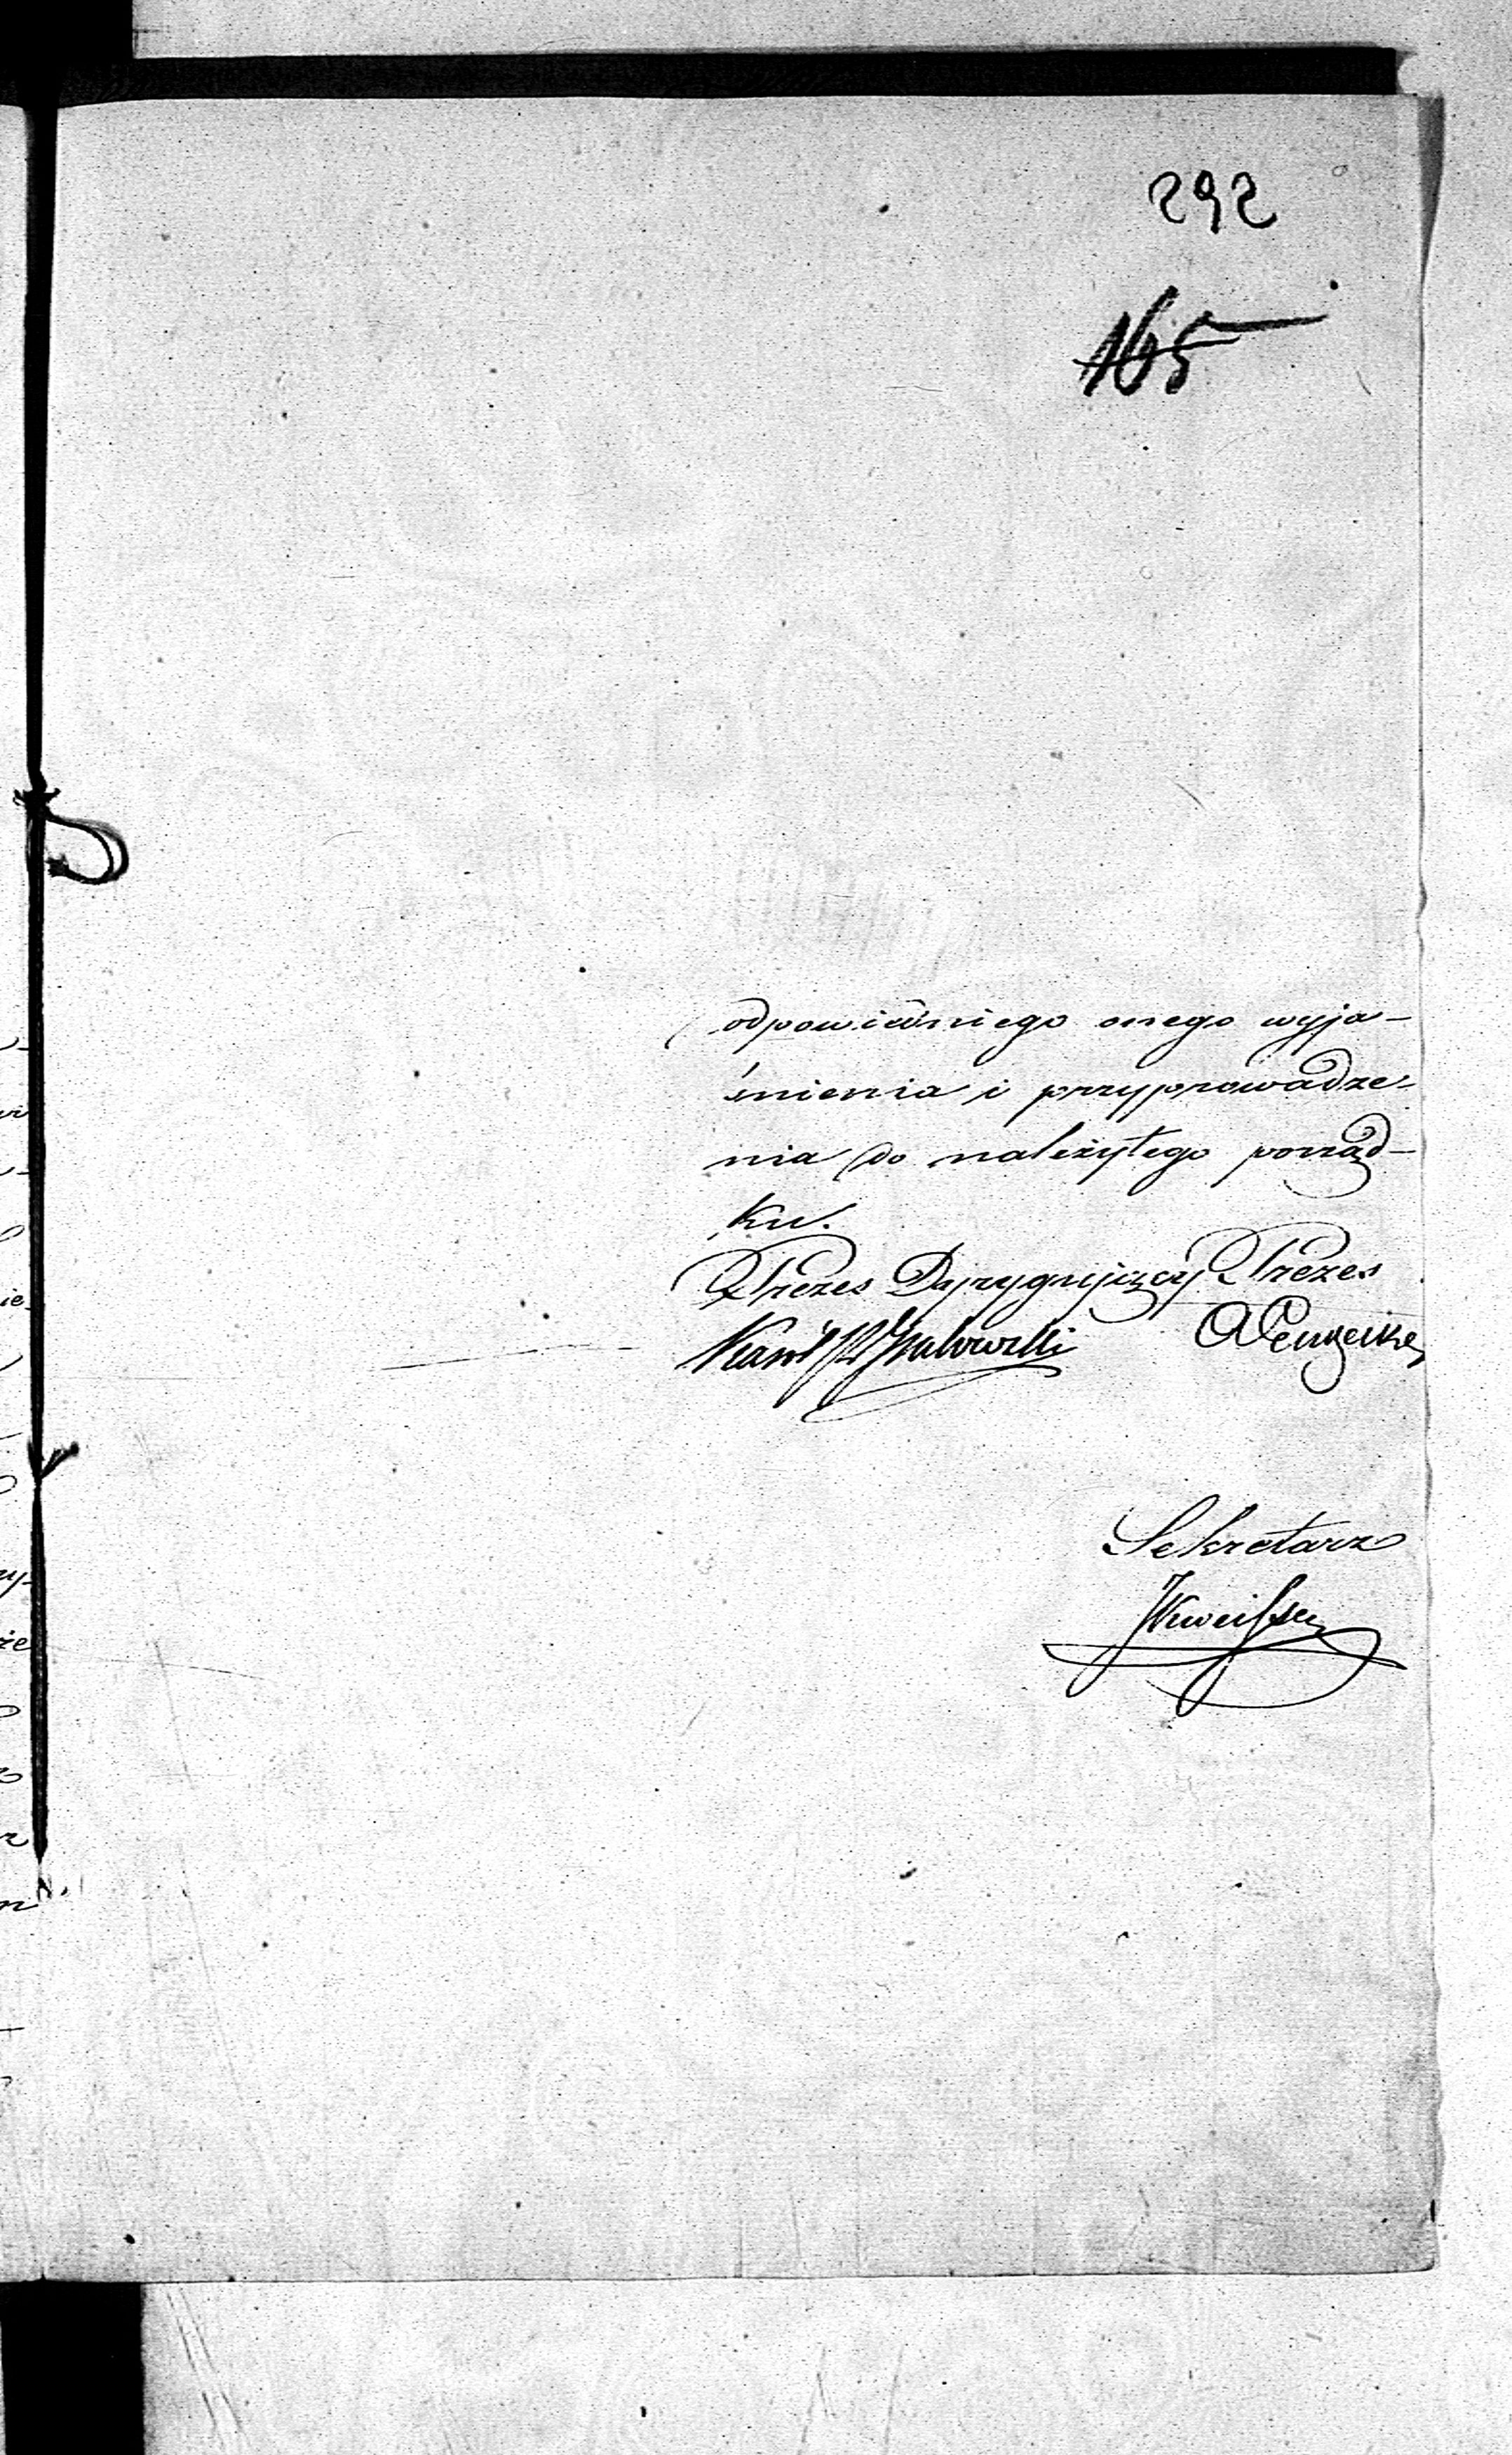 292
165
odpowiedniego onego wyja-
śnienia i przyprowadze-
nia do należytego porząd-
ku.
Prezes Dyrygujący Prezes
Karol
Sekretarz